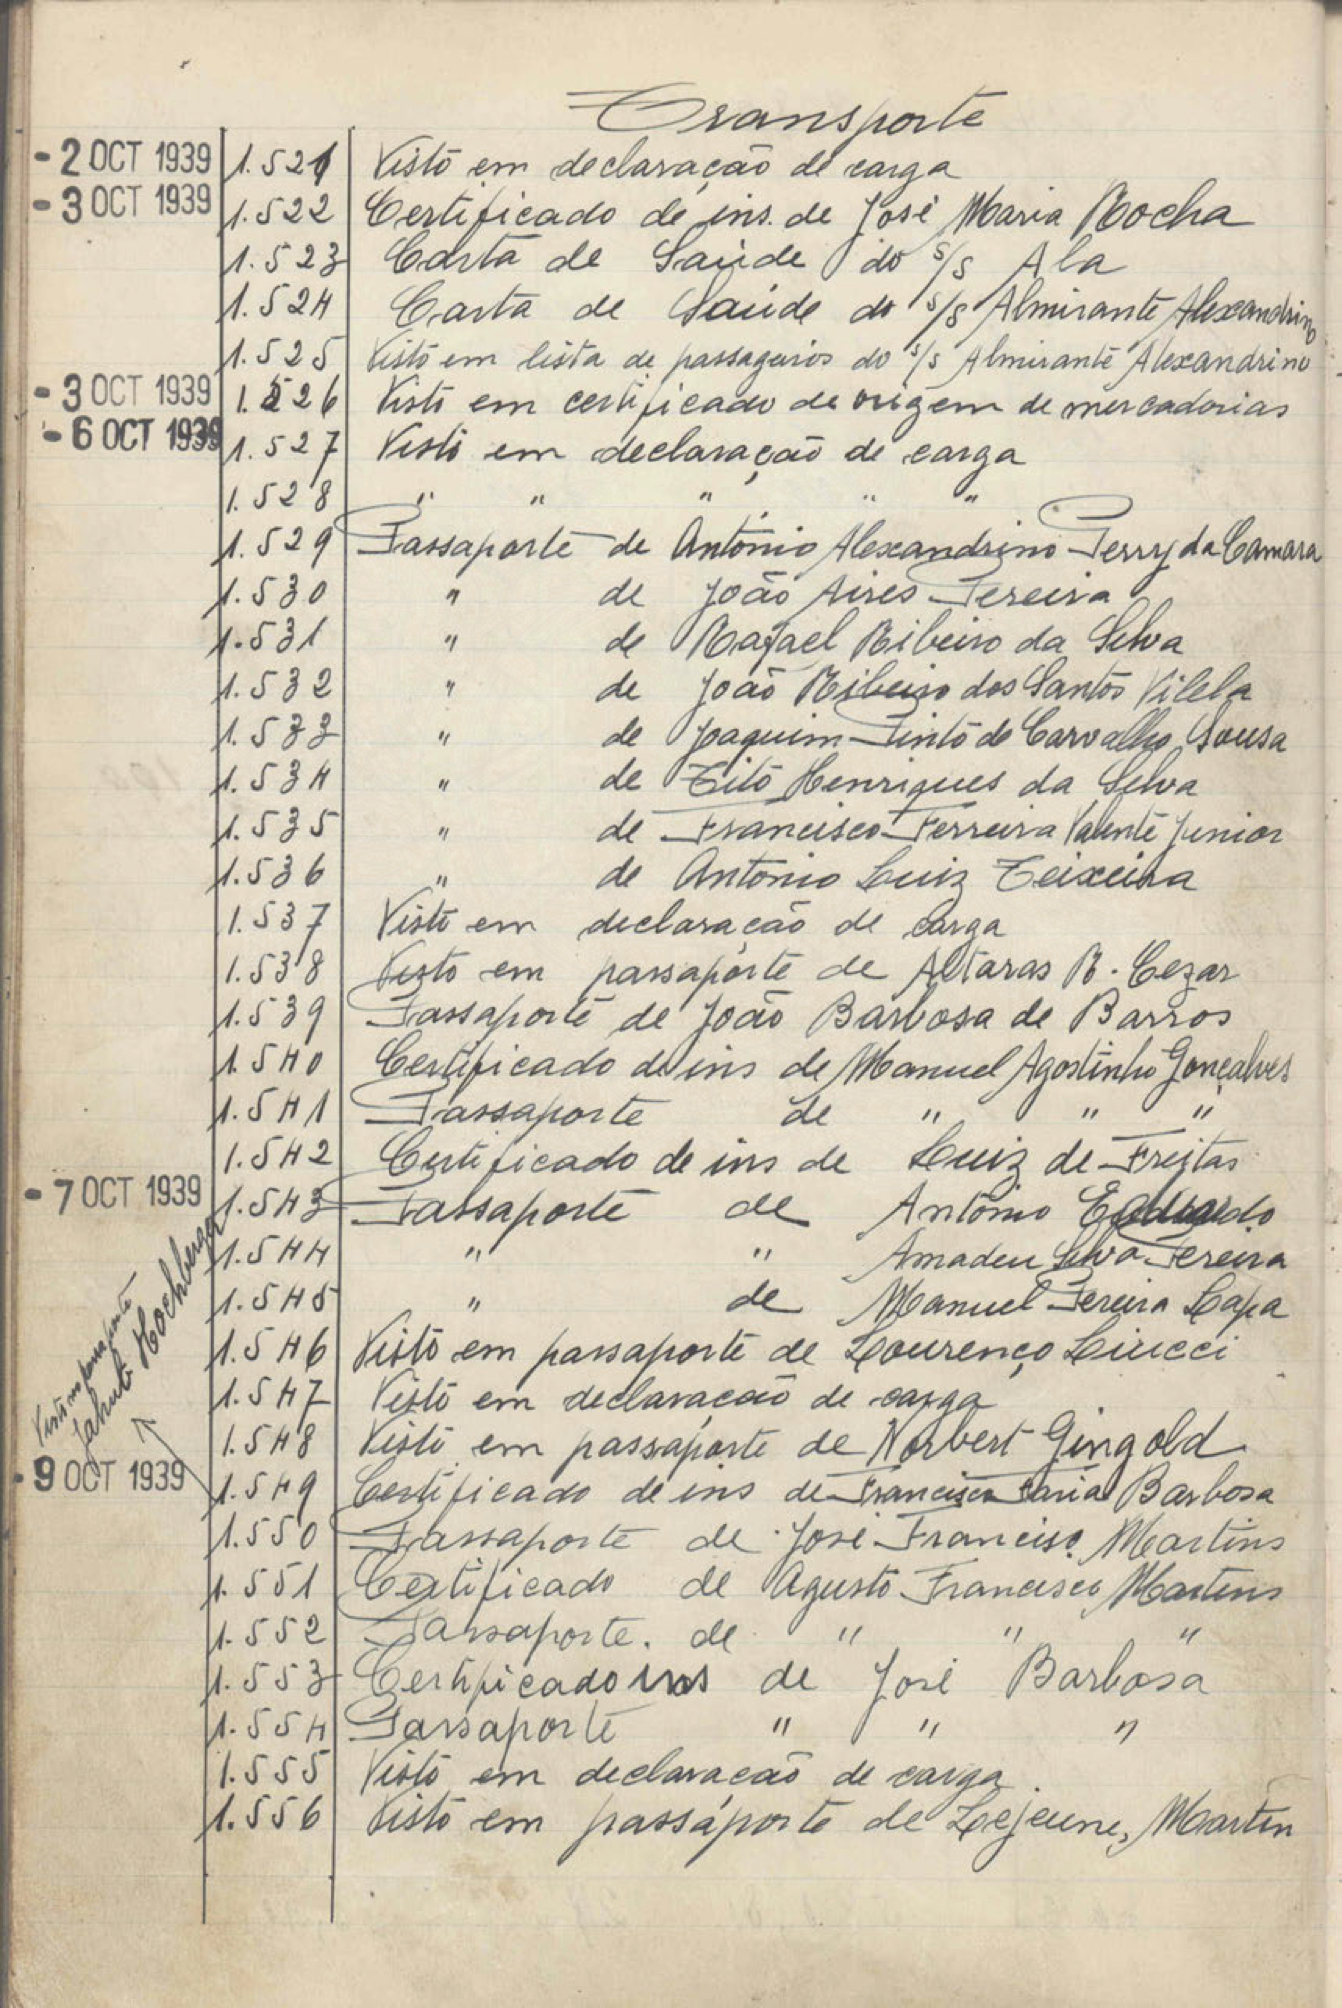 Transporte
- 2 OCT 1939 1.521 Visto em declaração de carga
- 3 OCT 1939 1.522 Certificado de ins. de José Maria Rocha
1.523 Carta de Saúde do s/s Ala
1.524 Carta de Saúde do s/s Almirante Alexandrino
1.525 Visto em lista de passageiros do s/s Almirante Alexandrino
- 3 OCT 1939 1.526 Visto em certificado de origem de mercadorias
- 6 OCT 1939 1.527 Visto em declaração de carga
1.528 " " " " "
1.529 Passaporte de António Alexandrino Perry da Camara
1.530 " de João Aires Pereira
1.531 " de Rafael Ribeiro da Silva
1.532 " de João Ribeiro dos Santos Vilela
1.533 " de Joaquim Pinto de Carvalho Sousa
1.534 " de Tito Henriques da Silva
1.535 " de Francisco Ferreira Valente Junior
1.536 " de António Luiz Teixeira
1.537 Visto em declaração de carga
1.538 Visto em passaporte de Altaras R. Cezar
1.539 Passaporte de João Barbosa de Barros
1.540 Certificado de ins de Manuel Agostinho Gonçalves
1.541 Passaporte de " " "
1.542 Certificado de ins de Luiz de Freitas
- 7 OCT 1939 1.543 Passaporte de António Eduardo
1.544 " " Amadeu Silva Pereira
1.545 " de Manuel Pereira Lapa
1.546 Visto em passaporte de Lourenço
1.547 Visto em declaração de carga
1.548 Visto em passaporte de Norbert Gingold
Visto no passaporte
Hochberger
- 9 OCT 1939 1.549 Certificado de ins de Francisco Faria Barbosa
1.550 Passaporte de José Francisco Martins
1.551 Certificado de Agusto Francisco Martins
1.552 Passaporte. de " " "
1.553 Certificado ins de José Barbosa
1.554 Passaporte " " "
1.555 Visto em declaração de carga.
1.556 Visto em passaporte de Lejeune, Martin